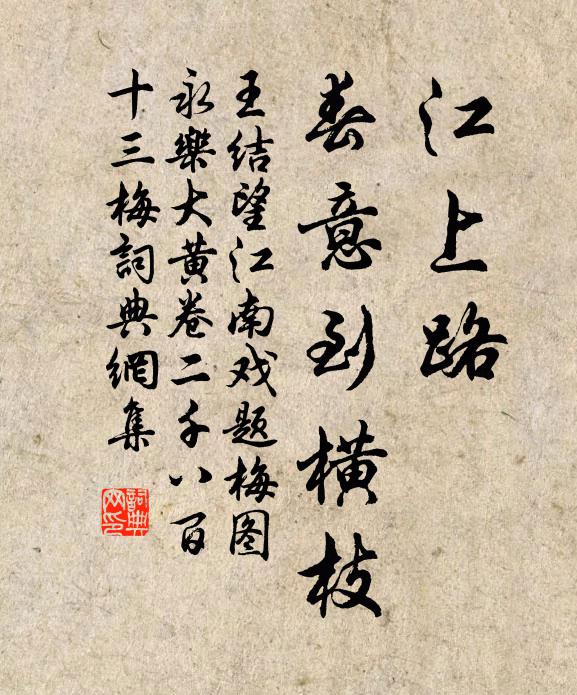 江上路
春意到横枝
王结望江南戏题梅图
永樂大黄卷二千八百
十三梅詞典網集
詞典
网印